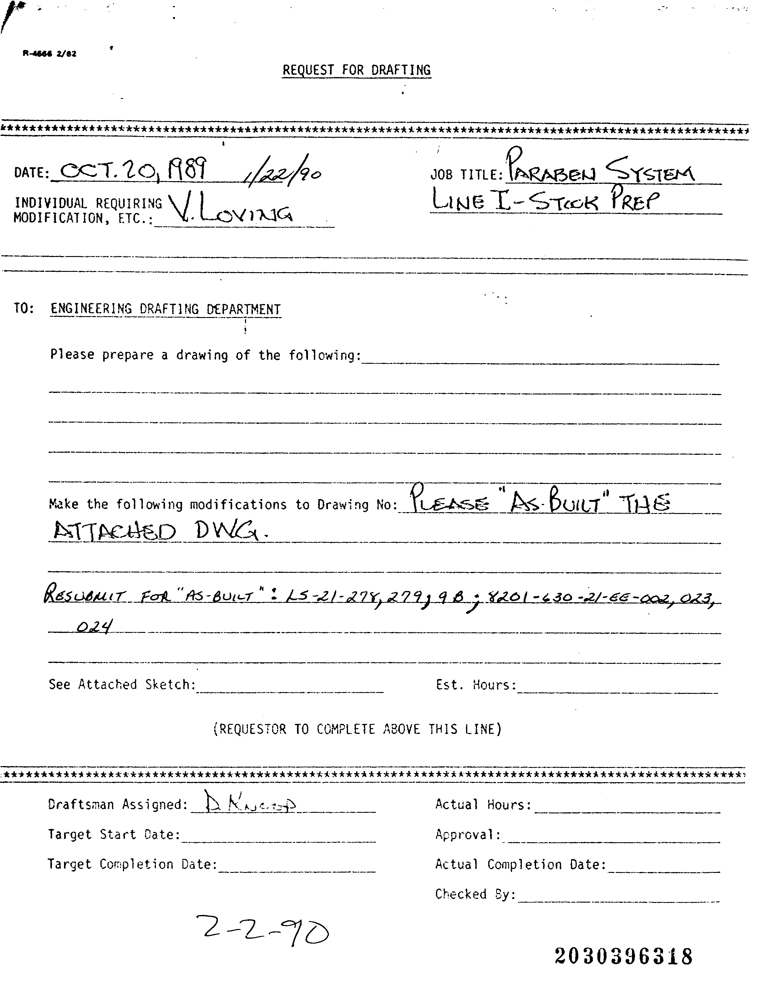 R-4666 2/82
REQUEST FOR DRAFTING
DATE: OCT. 20, 1989 1/22/90 JOB TITLE: PARABEN SYSTEM
INDIVIDUAL REQUIRING LINE I - STOCK PREP
MODIFICATION, ETC.: V. LOVING
TO: ENGINEERING DRAFTING DEPARTMENT
Please prepare a drawing of the following:
Make the following modifications to Drawing No: PLEASE "AS-BUILT" THE
ATTACHED DWG.
RESUBMIT FOR "AS-BUILT": LS-21-278, 279, 9B; 8201-630-21-EE-002, 023,
024
See Attached Sketch: Est. Hours:
(REQUESTOR TO COMPLETE ABOVE THIS LINE)
Draftsman Assigned: D Actual Hours:
Target Start Date: Approval:
Target Completion Date: Actual Completion Date:
Checked By:
2-2-90
2030396318